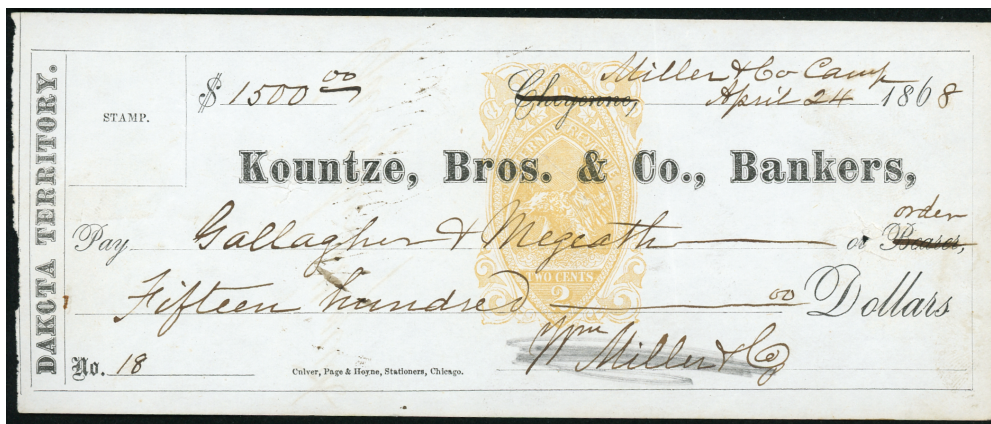 DAKOTA TERRITORY.
STAMP.
$ 1500 00
Miller & Co Camp
Cheyenne, April 24 1868
Kountze, Bros. & Co., Bankers,
order
Pay Gallagher & Megeath or Bearer,
Fifteen hundred 00 Dollars
TWO CENTS
2
Wm Miller & Co
No. 18
Culver, Page & Hoyne, Stationers, Chicago.